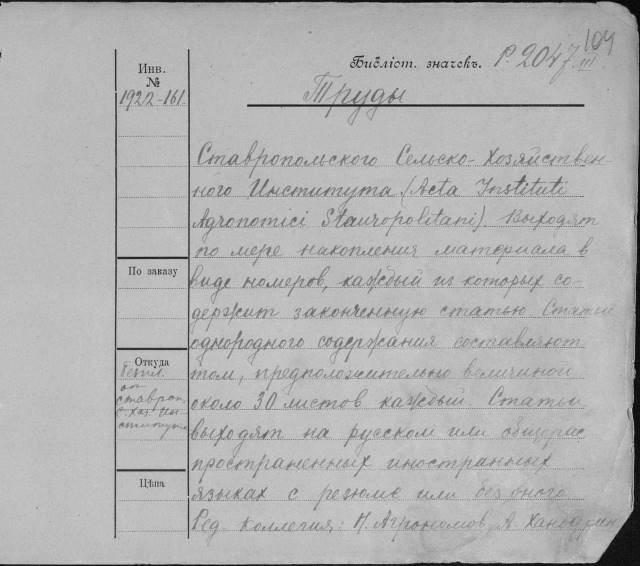 104
Библіот. значекъ. Р. 2047 III
Инв.
№
1922-161.
Труды
Ставропольского Сельско-Хозяйствен-
ного Института (Acta Instituti
Agronomici Stauropolitani). Выходят
по мере накопления материала в
виде номеров, каждый из которых со-
держит законченную статью. Статьи
однородного содержания составляют
том, предположительно величиной
около 30 листов каждый. Статьи
выходят на русском или общерас
пространенных иностранных
языках с резюме или без оного
Ред. Коллегия: Н. Агрономов, А.
По заказу
Откуда
безпл.
от
ставроп.
с. хоз. Ин
ститута
Цѣна